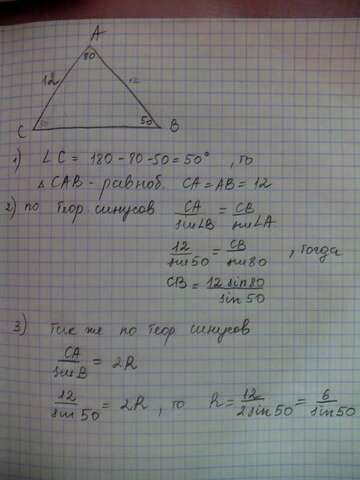 A
80
12
12
C
50
B
1) ∠C = 180 - 80 - 50 = 50° , то
△CAB - равноб. CA = AB = 12
2) по теор синусов CA/sin∠B = CB/sin∠A
12/sin50 = CB/sin80 , тогда
CB = 12 sin80/sin50
3) Так же по теор синусов
CA/sinB = 2R
12/sin50 = 2R , то R = 12/2sin50 = 6/sin50